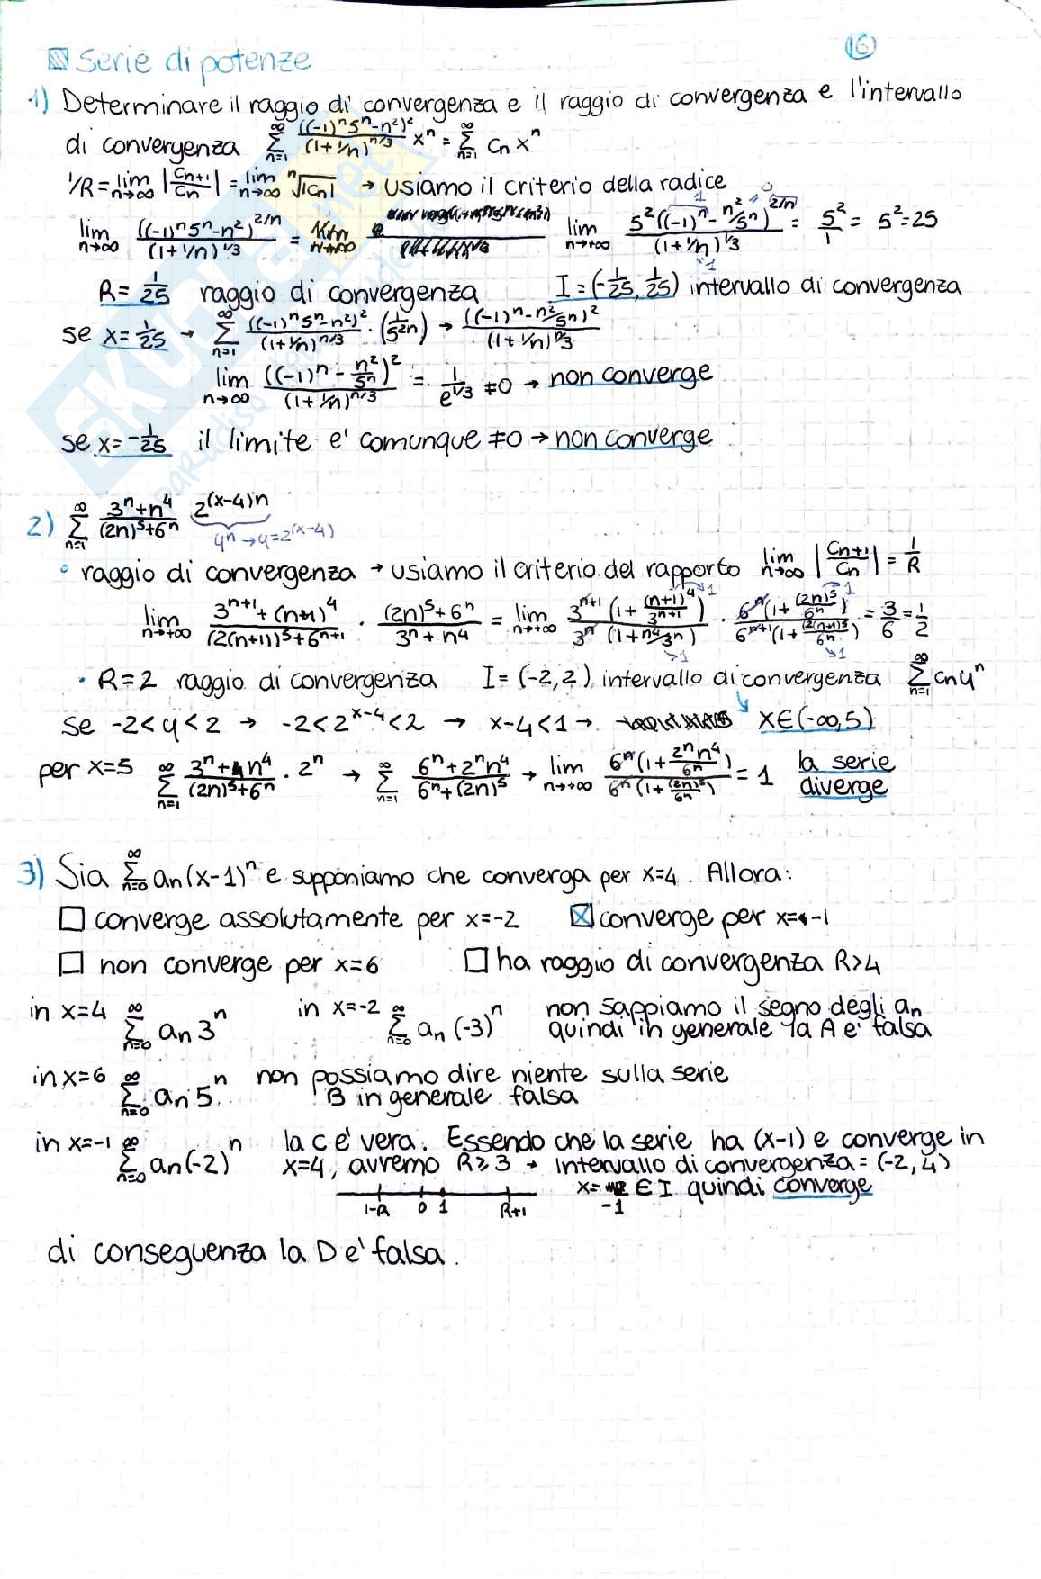 16
Serie di potenze
1) Determinare il raggio di convergenza e il raggio di convergenza e l'intervallo
di convergenza ∑_{n=1}^{∞} ((-1)^n 5^n - n^2)^2 / (1+1/n)^{n/3} x^n = ∑_{n=1}^{∞} Cn x^n
1/R = lim_{n→∞} |Cn+1/Cn| = lim_{n→∞} ⁿ√|Cn| → usiamo il criterio della radice
lim_{n→∞} ((-1)^n 5^n - n^2)^{2/n} / (1+1/n)^{1/3} = lim_{n→+∞} 5^2((-1)^n - n^2/5^n)^{2/n} / (1+1/n)^{1/3} = 5^2/1 = 5^2 = 25
R = 1/25 raggio di convergenza I = (-1/25, 1/25) intervallo di convergenza
se x = 1/25 → ∑_{n=1}^{∞} ((-1)^n 5^n - n^2)^2 / (1+1/n)^{n/3} · (1/5^{2n}) → ((-1)^n - n^2/5^n)^2 / (1+1/n)^{n/3}
lim_{n→∞} ((-1)^n - n^2/5^n)^2 / (1+1/n)^{n/3} = 1/e^{1/3} ≠ 0 → non converge
se x = -1/25 il limite e' comunque ≠0 → non converge
2) ∑_{n=1}^{∞} (3^n + n^4) / ((2n)^5 + 6^n) 2^{(x-4)n}
y^n → y = 2^{(x-4)}
• raggio di convergenza → usiamo il criterio del rapporto lim_{n→∞} |Cn+1/Cn| = 1/R
lim_{n→∞} (3^{n+1} + (n+1)^4) / ((2(n+1))^5 + 6^{n+1}) · ((2n)^5 + 6^n) / (3^n + n^4) = lim_{n→+∞} 3^{n+1}(1 + (n+1)^4/3^{n+1}) / 3^n(1 + n^4/3^n) · 6^n(1 + (2n)^5/6^n) / 6^{n+1}(1 + (2(n+1))^5/6^n) = 3/6 = 1/2
• R = 2 raggio di convergenza I = (-2, 2) intervallo di convergenza ∑_{n=1}^{∞} cn y^n
se -2 < y < 2 → -2 < 2^{x-4} < 2 → x-4 < 1 → x ∈ (-∞, 5)
per x=5 ∑_{n=1}^{∞} (3^n + n^4) / ((2n)^5 + 6^n) · 2^n → ∑_{n=1}^{∞} (6^n + 2^n n^4) / (6^n + (2n)^5) → lim_{n→+∞} 6^n(1 + 2^n n^4/6^n) / 6^n(1 + (2n)^5/6^n) = 1 la serie
diverge
3) Sia ∑_{n=0}^{∞} an(x-1)^n e supponiamo che converga per x=4. Allora:
☐ converge assolutamente per x=-2 ☒ converge per x=-1
☐ non converge per x=6 ☐ ha raggio di convergenza R>4
in x=4 ∑_{n=0}^{∞} an 3^n in x=-2 ∑_{n=0}^{∞} an (-3)^n non sappiamo il segno degli an
quindi in generale la A e' falsa
in x=6 ∑_{n=0}^{∞} an 5^n non possiamo dire niente sulla serie
B in generale falsa
in x=-1 ∑_{n=0}^{∞} an(-2)^n la c e' vera. Essendo che la serie ha (x-1) e converge in
x=4, avremo R≥3 → intervallo di convergenza = (-2, 4)
1-R 0 1 R+1 x= -1 ∈ I quindi converge
di conseguenza la D e' falsa.